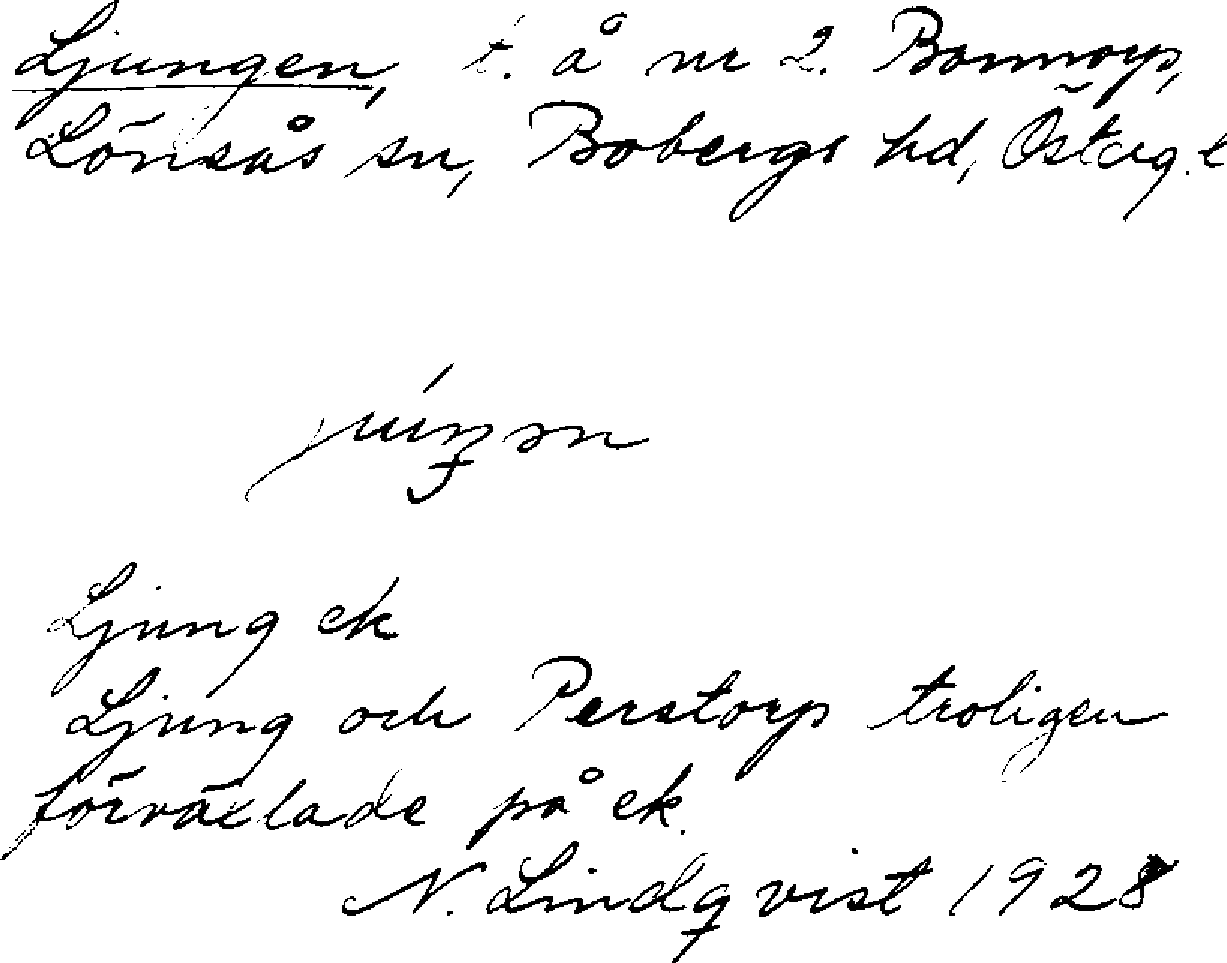 Ljungen, t. å nr 2. Bonnorp,
Lönsås sn, Bobergs hd, Österg.l
Ljung ek
Ljung och Perstorp troligen
förväxlade på ek.
N. Lindqvist 1928